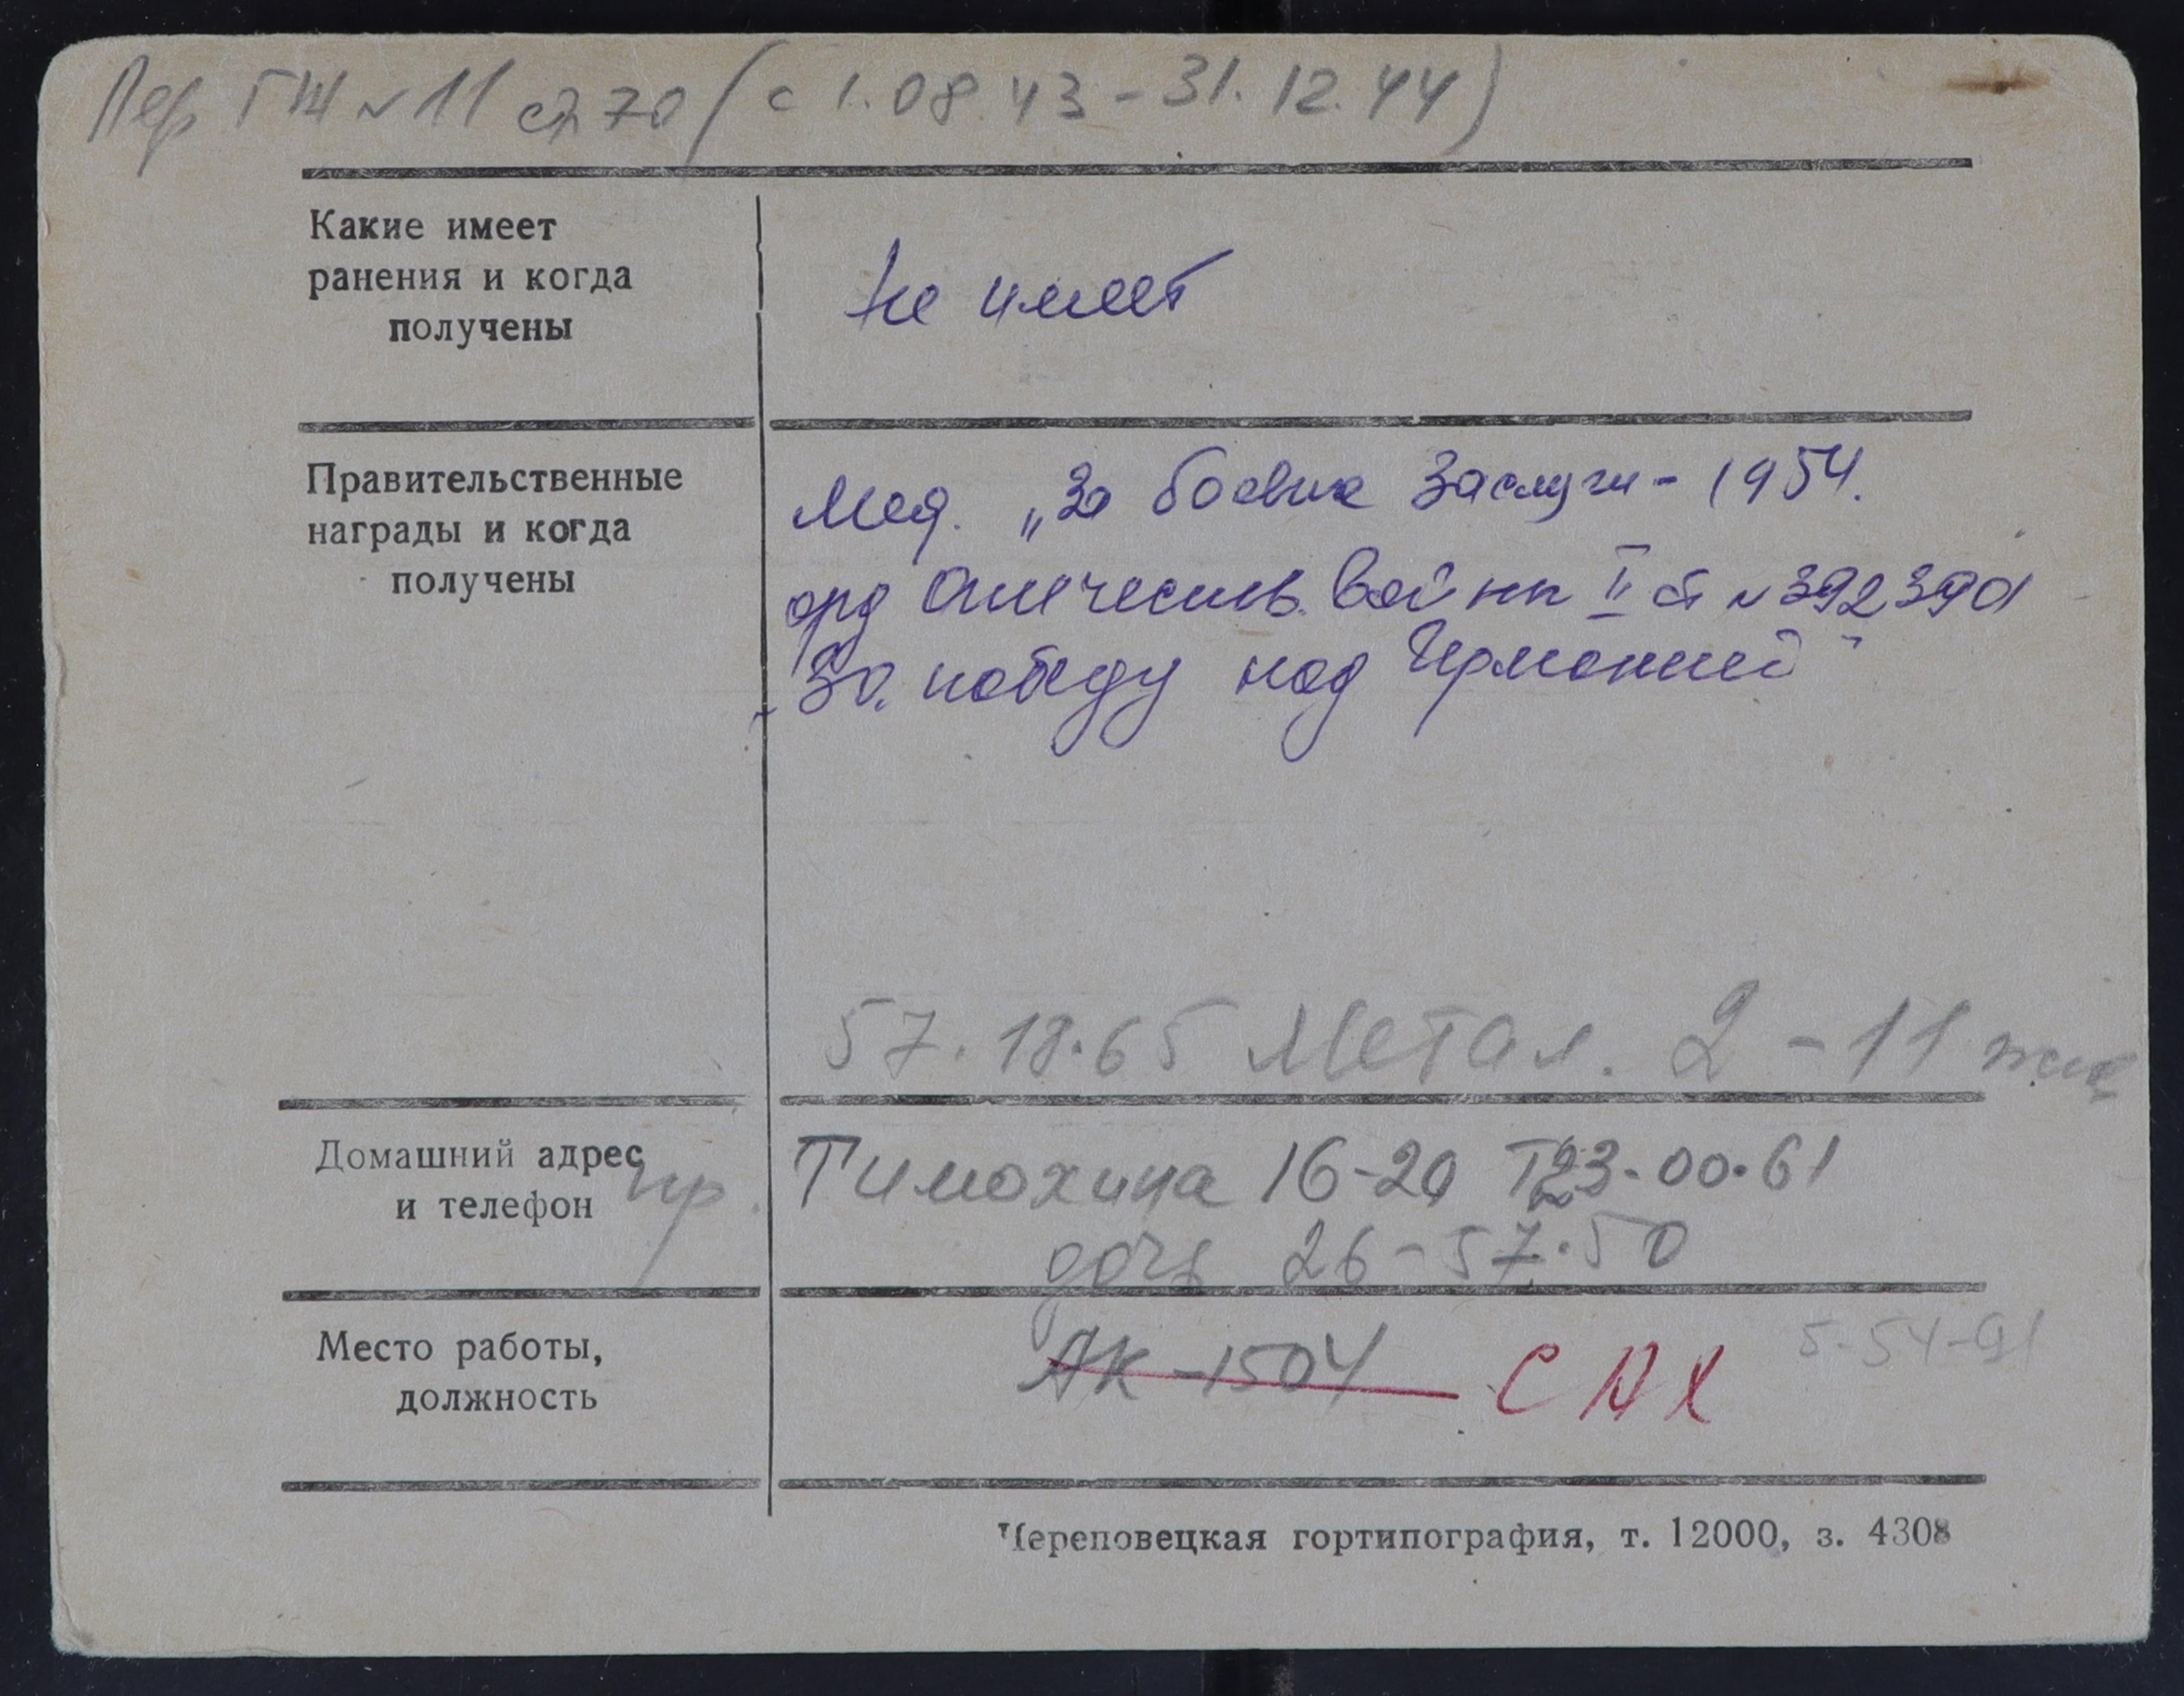 Пер ГЖ № 11 ст 70 (с 1.08.43 - 31.12.44)
Какие имеет
ранения и когда
получены
Не имеет
Правительственные
награды и когда
получены
Мед. „За боевые заслуги - 1954.
орд Отечеств. войны II ст №392390
„За победу над Германией"
57.18.65 Метал. 2 - 11
Домашний адрес
и телефон
пр. Тимохина 16-20 Т 23-00-61
дочь 26-57-50
Место работы,
должность
АК-1504 СПХ 5-54-91
Череповецкая гортипография, т. 12000, з. 4308